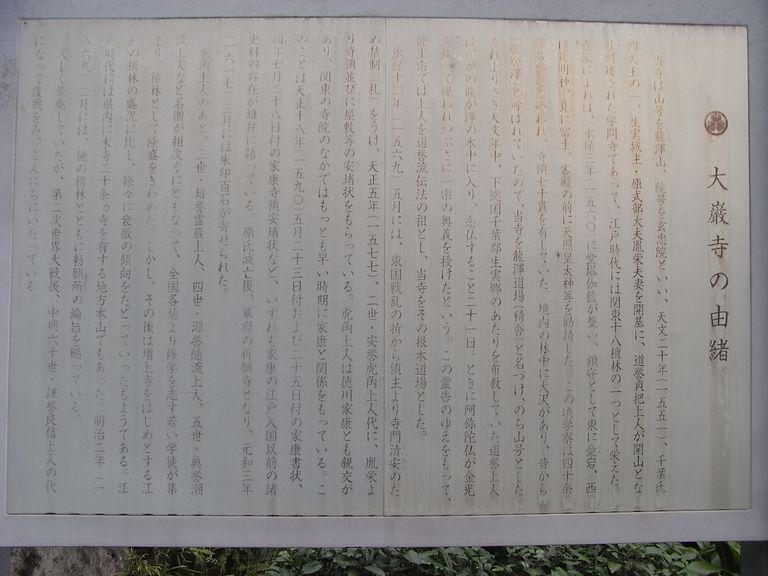 大巌寺の由緒
当寺は山号を龍澤山、院号を玄忠院といい、天文二十年(一五五一)、千葉氏
四天王の一、生実城主・原式部大夫胤栄夫妻を開基に、道誉貞把上人が開山とな
り創建された学問寺であって、江戸時代には関東十八檀林の一つとして栄えた。
によれば、永禄三年(一五六〇)に堂塔伽藍が整い、鎮守として東に愛宕、西
に富士、客殿の前に天照皇太神等を勧請した。この頃学寮は四十余
われ、寺領七十貫を有していた。境内の林中に大沢があり、昔から
龍澤と呼ばれていたので、当寺を龍澤道場(精舎)と名づけ、のち山号とした。
これよりさき天文年中、下総国千葉郡生実郷のあたりを布教していた道誉上人
は、の龍が澤の水中に入り、念仏すること二十一日、ときに阿弥陀仏が金光
を現われつぶさに一宗の奥義を授けたという。この霊告のゆえをもって、
宗では上人を道誉流伝法の祖とし、当寺をその根本道場とした。
永禄十二年(一五六九)五月には、東国戦乱の折から領主より寺門清安のた
め禁制(札)をうけ、天正五年(一五七七)、二世・安誉虎角上人代に、胤栄よ
り寺領並びに屋敷等の安堵状をもらっている。虎角上人は徳川家康とも親交が
あり、関東の寺院のなかではもっとも早い時期に家康と関係をもっている。こ
のことは天正十八年(一五九〇)五月二十三日付および二十五日付の家康書状、
同年七月二十八日付の家康寺領安堵状など、いずれも家康の江戸入国以前の諸
史料の存在が雄弁に語っている。原氏滅亡後、幕府の祈願寺となり、元和三年
(一六一七)三月には朱印百石が寄せられた。
虎角上人のあと、三世・雄誉霊巌上人、四世・源誉随流上人、五世・典誉潮
流上人など名僧が相次ぐにともなって、全国各地より修学を志す若い学徒が集
まり、檀林として隆盛をきわめた。しかし、その後は増上寺をはじめとする江
戸の檀林の盛況に比し、徐々に衰微の傾向をたどっていったもようである。江
戸時代には県内に末寺二十余カ寺を有する地方本山でもあった。明治二年(一
八六九)二月には、他の檀林とともに勅願所の綸旨を賜っている。
久しく荒廃していたが、第二次世界大戦後、中興六十世・謙誉良信上人の代
になって復興をみ、こんにちにいたっている。